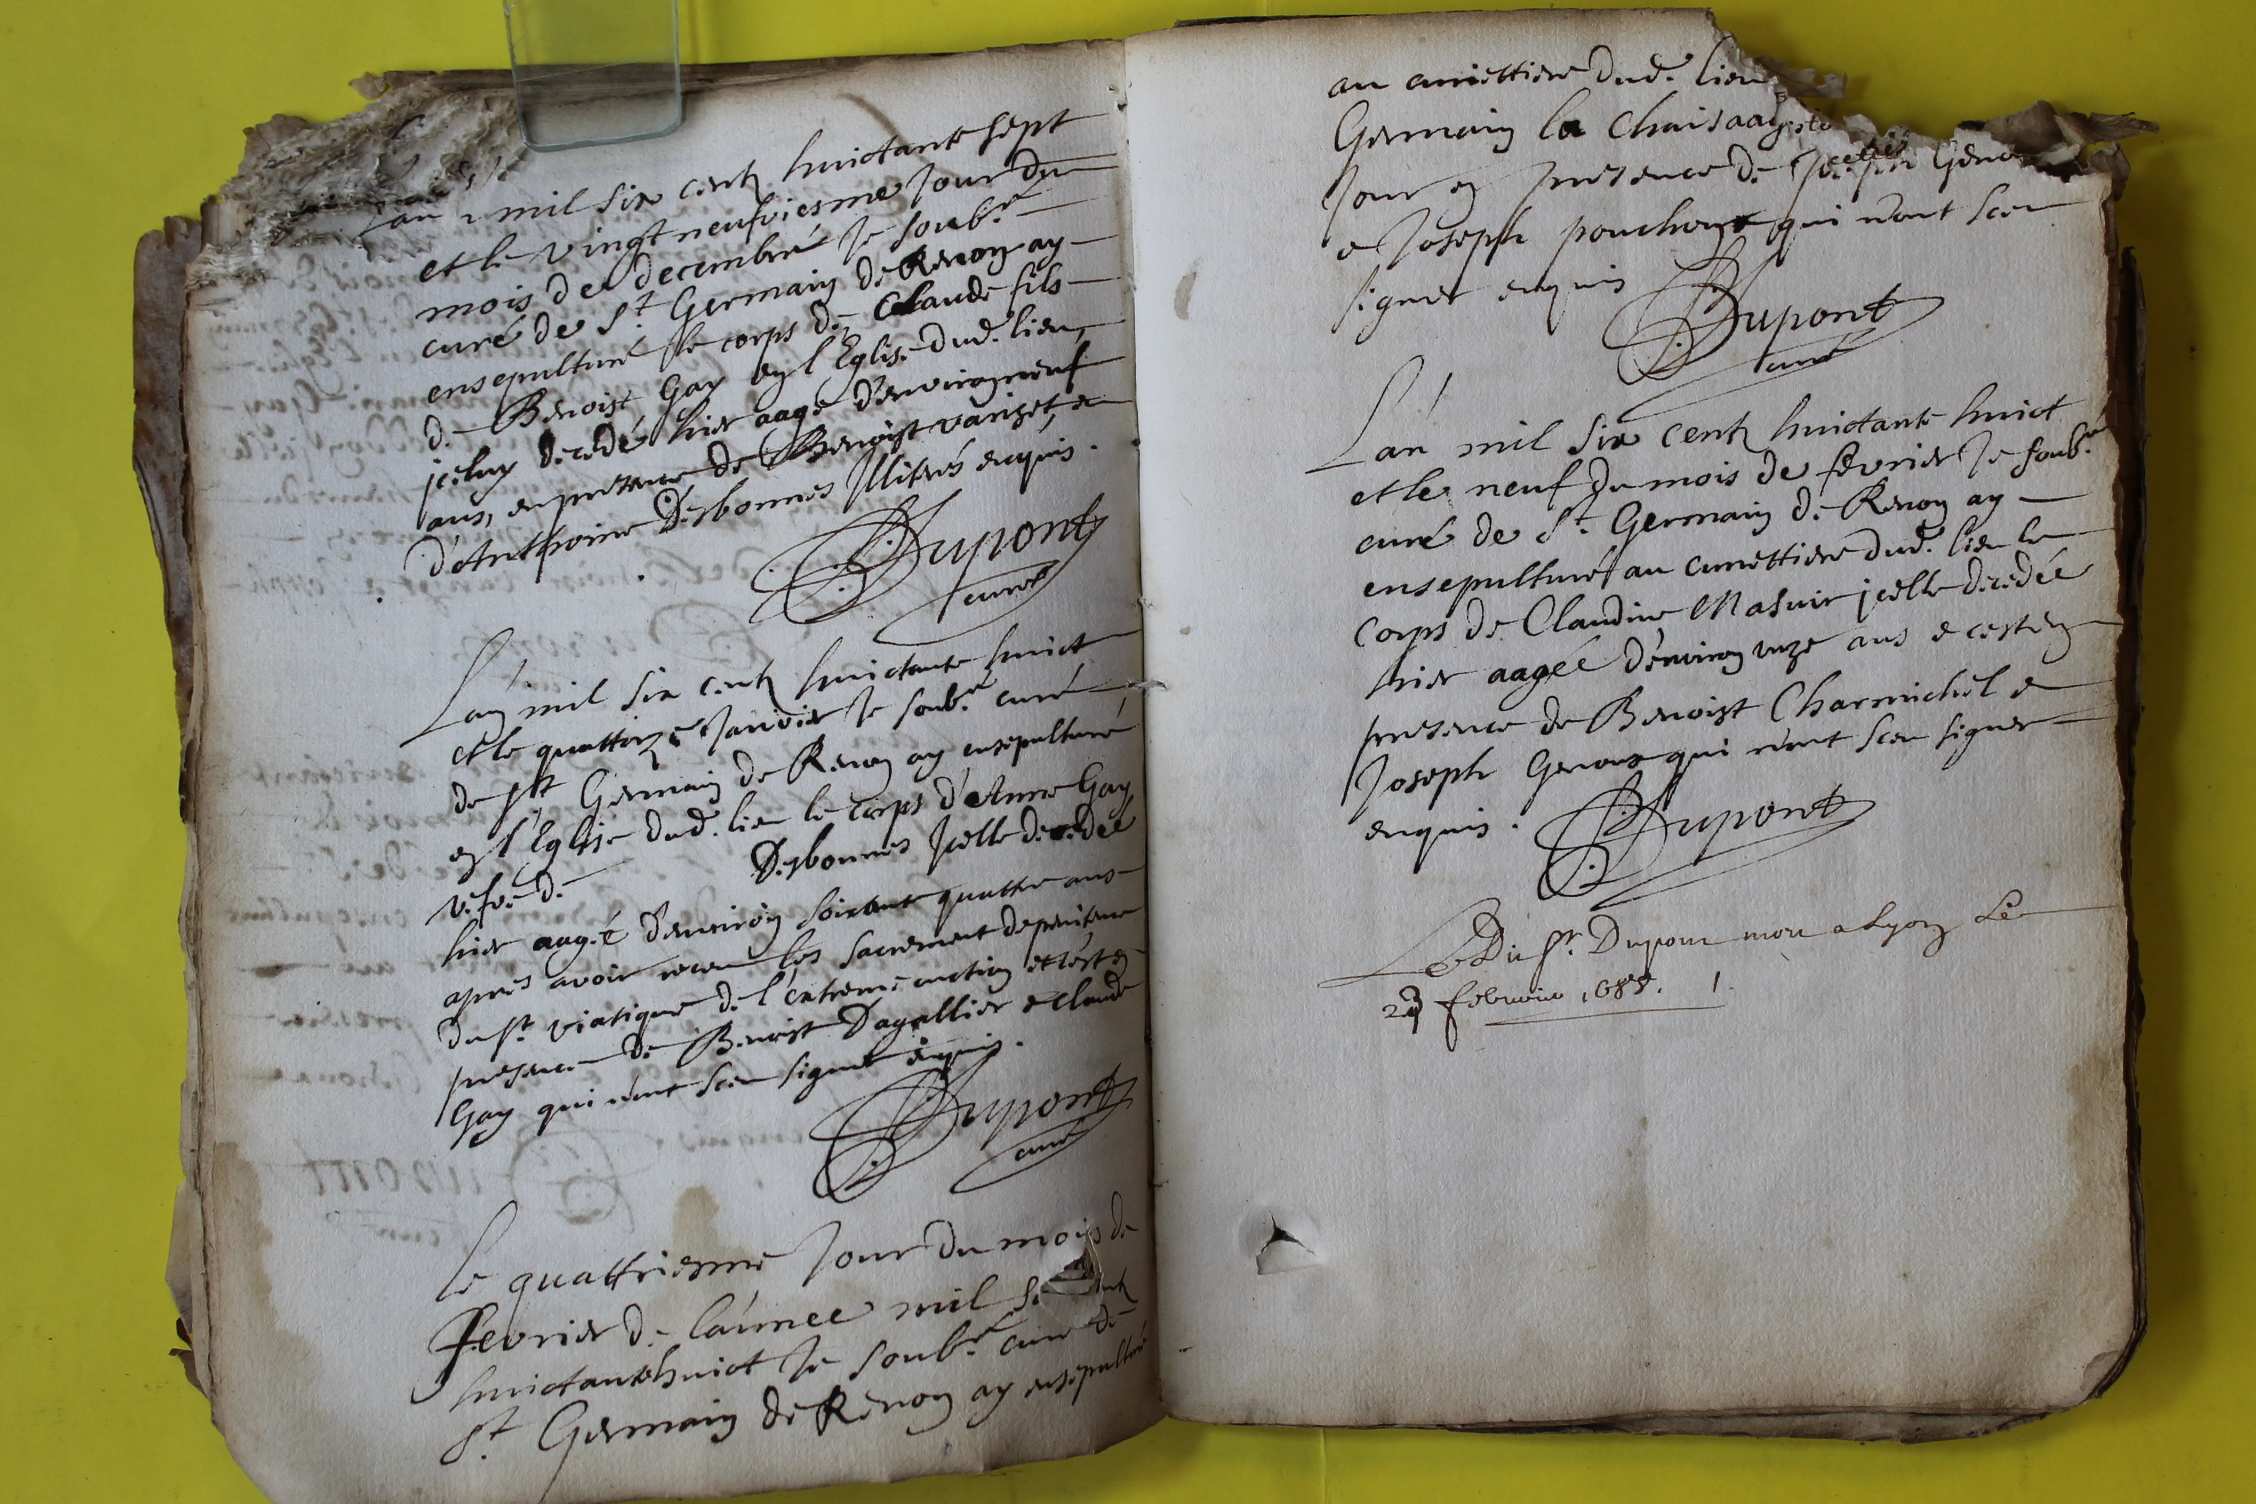 L'an mil six centz huictante sept
et le vingt neufviesme Jour du
mois de decembre Je soub.né
curé de St Germain de Renon ay
ensepulturé le corps de Claude fils
de Benoist Gay en l'Eglise dud. lieu,
jceluy decedé hier aagé d'environ neuf
ans, en presence de Benoist varizet, e
d'Anthoine Desbonnes Jllitrés enquis.
Dupont
curé
L'an mil six centz huictante huict
et le quattorze Janvier Je soub.né curé
de St Germain de Renon ay ensepulturé
en l'Eglise dud. lieu le corps d'Anne Gay
vefve de Desbonnes Jcelle decedée
hier aagée d'environ soixante quattre ans
apres avoir receu les sacrement de penitence
du St. viatique de l'extreme onction et c'est en
presence de Benoist Dagallier e claude
Gay qui n'ont sceu signer enquis.
Dupont
curé
Le quattriesme Jour du mois de
fevrier de l'année mil
huictante huict Je soub.né curé de
St. Germain de Renon ay ensepulturé
au cimettiere dud. lieu
Germain la Chaisa
Jour en presence de
e Joseph pouchoux qui n'ont sceu
signer enquis
Dupont
curé
L'an mil six centz huictante huict
et le neuf du mois de fevrier Je soub.né
curé de St. Germain de Renon ay
ensepulturé au cimettiere dud. lieu le
corps de Claudine Masuir jcelle decedée
hier aagée d'environ unze ans e cest en
presence de Benoist Charmichel e
Joseph Genoux qui n'ont sceu signer
enquis. Dupont
Le Dit Sr. Dupont mort a Lyon Le
23 febvrier 1688.